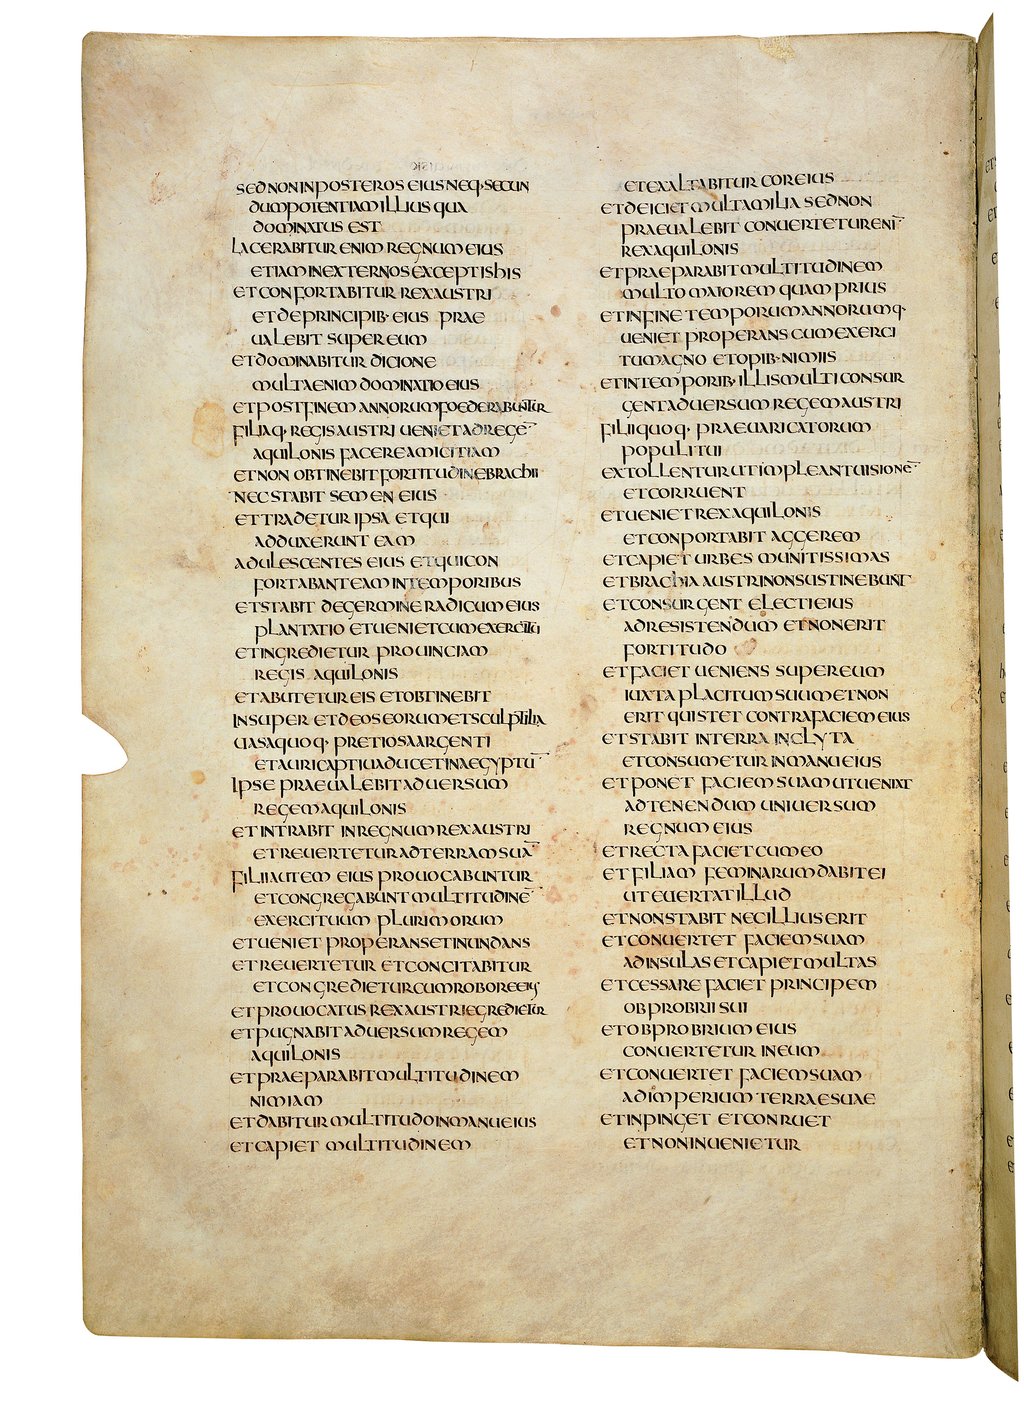 SED NON IN POSTEROS EIUS NEQ· SECUN
DUM POTENTIAM ILLIUS QUA
DOMINATUS EST
LACERABITUR ENIM REGNUM EIUS
ETIAM IN EXTERNOS EXCEPTIS HIS
ET CONFORTABITUR REX AUSTRI
ET DE PRINCIPIB· EIUS PRAE
UALEBIT SUPER EUM
ET DOMINABITUR DICIONE
MULTA ENIM DOMINATIO EIUS
ET POST FINEM ANNORUM FOEDERABUNTUR
FILIAQ· REGIS AUSTRI UENIET AD REGE̅
AQUILONIS FACERE AMICITIAM
ET NON OBTINEBIT FORTITUDINE BRACHII
NEC STABIT SEMEN EIUS
ET TRADETUR IPSA ET QUI
ADDUXERUNT EAM
ADULESCENTES EIUS ET QUI CON
FORTABANT EAM IN TEMPORIBUS
ET STABIT DE GERMINE RADICUM EIUS
PLANTATIO ET UENIET CUM EXERCITU
ET INGREDIETUR PROUINCIAM
REGIS AQUILONIS
ET ABUTETUR EIS ET OBTINEBIT
INSUPER ET DEOS EORUM ET SCULPTILIA
UASA QUOQ· PRETIOSA ARGENTI
ET AURI CAPTIUA DUCET IN AEGYPTU̅
IPSE PRAEUALEBIT ADUERSUM
REGEM AQUILONIS
ET INTRABIT IN REGNUM REX AUSTRI
ET REUERTETUR AD TERRAM SUA̅
FILII AUTEM EIUS PROUOCABUNTUR
ET CONGREGABUNT MULTITUDINE̅
EXERCITUUM PLURIMORUM
ET UENIET PROPERANS ET INUNDANS
ET REUERTETUR ET CONCITABITUR
ET CONGREDIETUR CUM ROBORE EIUS
ET PROUOCATUS REX AUSTRI EGREDIETUR
ET PUGNABIT ADUERSUM REGEM
AQUILONIS
ET PRAEPARABIT MULTITUDINEM
NIMIAM
ET DABITUR MULTITUDO IN MANU EIUS
ET CAPIET MULTITUDINEM
ET EXALTABITUR COR EIUS
ET DEICIET MULTA MILIA SED NON
PRAEUALEBIT CONUERTETUR ENI̅
REX AQUILONIS
ET PRAEPARABIT MULTITUDINEM
MULTO MAIOREM QUAM PRIUS
ET IN FINE TEMPORUM ANNORUMQ·
UENIET PROPERANS CUM EXERCI
TU MAGNO ET OPIB· NIMIIS
ET IN TEMPORIB· ILLIS MULTI CONSUR
GENT ADUERSUM REGEM AUSTRI
FILII QUOQ· PRAEUARICATORUM
POPULI TUI
EXTOLLENTUR UT IMPLEANT UISIONE̅
ET CORRUENT
ET UENIET REX AQUILONIS
ET CONPORTABIT AGGEREM
ET CAPIET URBES MUNITISSIMAS
ET BRACHIA AUSTRI NON SUSTINEBUNT
ET CONSURGENT ELECTI EIUS
AD RESISTENDUM ET NON ERIT
FORTITUDO
ET FACIET UENIENS SUPER EUM
IUXTA PLACITUM SUUM ET NON
ERIT QUI STET CONTRA FACIEM EIUS
ET STABIT IN TERRA INCLYTA
ET CONSUMETUR IN MANU EIUS
ET PONET FACIEM SUAM UT UENIAT
AD TENENDUM UNIUERSUM
REGNUM EIUS
ET RECTA FACIET CUM EO
ET FILIAM FEMINARUM DABIT EI
UT EUERTAT ILLUD
ET NON STABIT NEC ILLIUS ERIT
ET CONUERTET FACIEM SUAM
AD INSULAS ET CAPIET MULTAS
ET CESSARE FACIET PRINCIPEM
OBPROBRII SUI
ET OBPROBRIUM EIUS
CONUERTETUR IN EUM
ET CONUERTET FACIEM SUAM
AD IMPERIUM TERRAE SUAE
ET INPINGET ET CONRUET
ET NON INUENIETUR